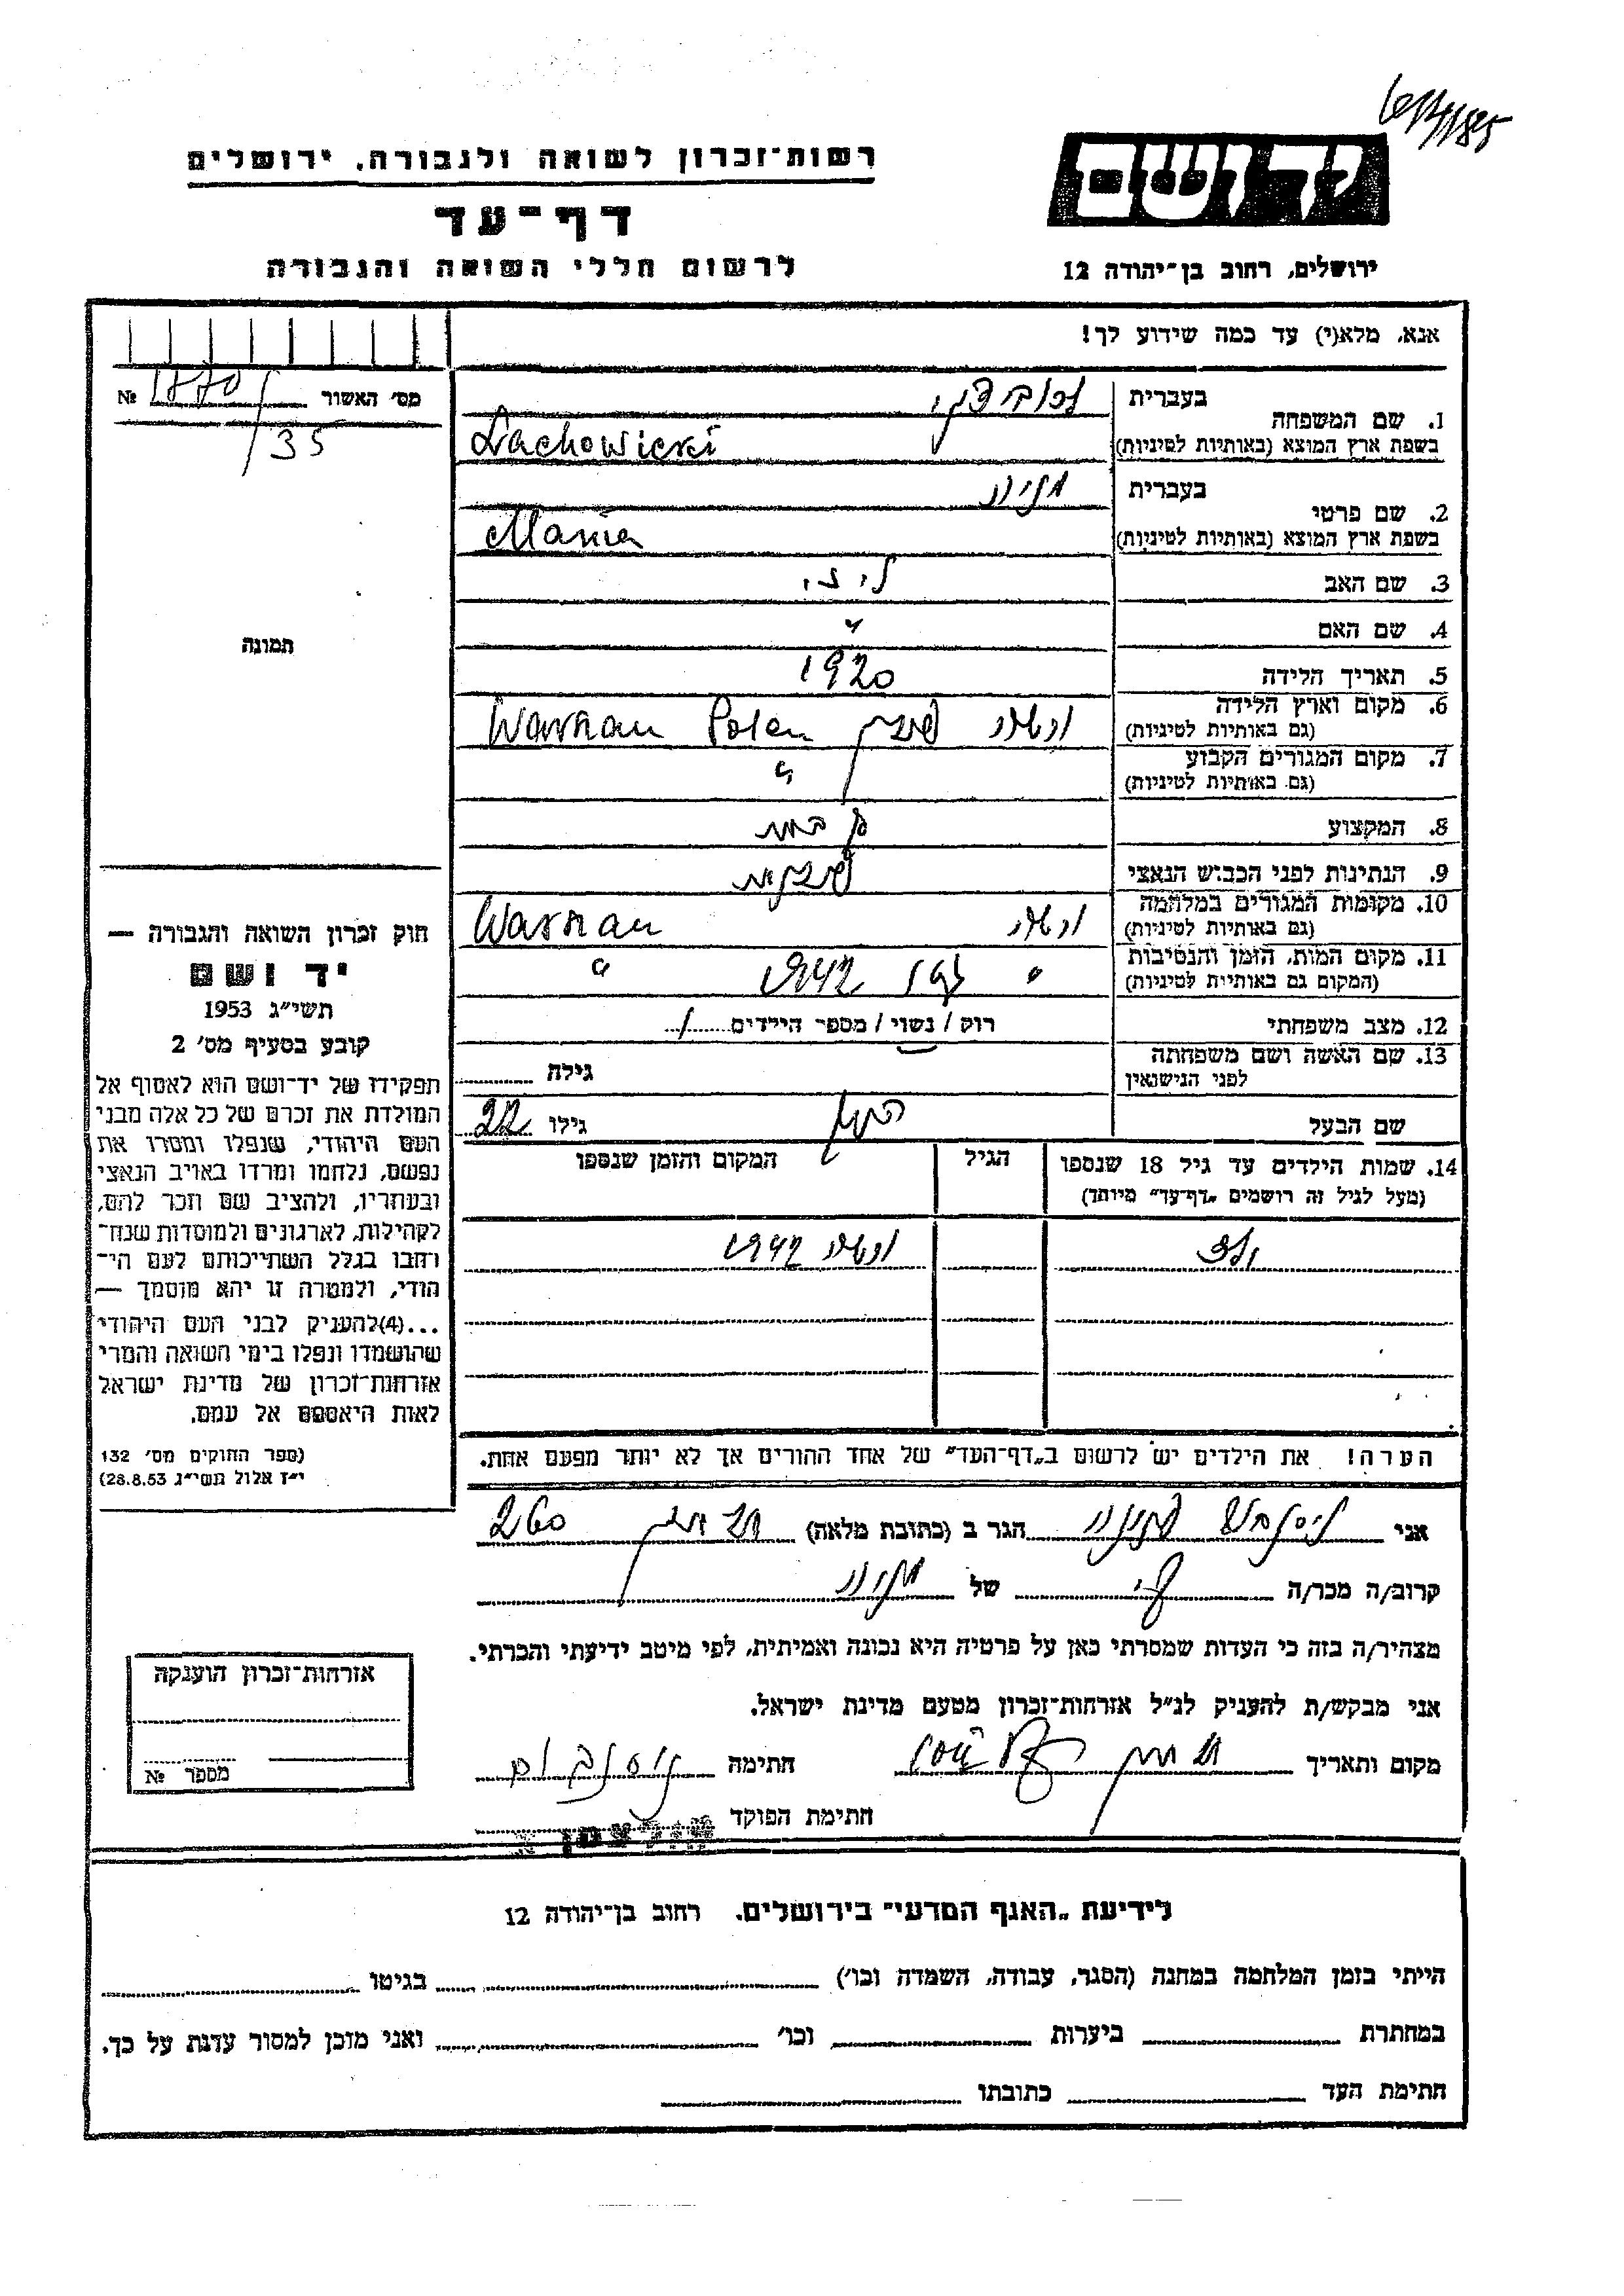 רשות־זכרון לשואה ולגבורה. ירושלים
דף־עד
לרשום חללי השואה והגבורה
יד ושם
ירושלים, רחוב בן־יהודה 12
אנא, מלא(י) עד כמה שידוע לך!
מס׳ האשור № 1770/35
1. שם המשפחה
בעברית
בשפת ארץ המוצא (באותיות לטיניות) Lachowicki
2. שם פרטי
בעברית מניה
בשפת ארץ המוצא (באותיות לטיניות) Mania
3. שם האב
4. שם האם "
5. תאריך הלידה 1920
6. מקום וארץ הלידה
(גם באותיות לטיניות) ורשה פולין Warshau Polen
7. מקום המגורים הקבוע
(גם באותיות לטיניות) "
8. המקצוע
9. הנתינות לפני הכבוש הנאצי פולנית
10. מקומות המגורים במלחמה
(גם באותיות לטיניות) ורשה Warshau
11. מקום המות, הזמן והנסיבות
(המקום גם באותיות לטיניות) " 1942 "
12. מצב משפחתי רוק / נשוי / מספר הילדים 1
13. שם האשה ושם משפחתה
לפני הנישואין
גילה
שם הבעל גילו 22
14. שמות הילדים עד גיל 18 שנספו
(מעל לגיל זה רושמים „דף־עד״ מיוחד)
הגיל
המקום והזמן שנספו
ילד ורשה 1942
הערה! את הילדים יש לרשום ב„דף־העד״ של אחד ההורים אך לא יותר מפעם אחת.
תמונה
חוק זכרון השואה והגבורה —
יד ושם
תשי״ג 1953
קובע בסעיף מס׳ 2
תפקידו של יד־ושם הוא לאסוף אל
המולדת את זכרם של כל אלה מבני
העם היהודי, שנפלו ומסרו את
נפשם, נלחמו ומרדו באויב הנאצי
ובעוזריו, ולהציב שם וזכר להם,
לקהילות, לארגונים ולמוסדות שנח־
רחבו בגלל השתייכותם לעם הי־
הודי, ולמטרה זו יהא מוסמך —
...(4)להעניק לבני העם היהודי
שהושמדו ונפלו בימי השואה והמרי
אזרחות־זכרון של מדינת ישראל
לאות היאספם אל עמם.
(ספר החוקים מס׳ 132
י״ז אלול תשי״ג 28.8.53)
אני הגר ב (כתובת מלאה) 260
קרוב/ה מכר/ה של מניה
מצהיר/ה בזה כי העדות שמסרתי כאן על פרטיה היא נכונה ואמיתית, לפי מיטב ידיעתי והכרתי.
אני מבקש/ת להעניק לנ״ל אזרחות־זכרון מטעם מדינת ישראל.
מקום ותאריך חתימה
חתימת הפוקד
אזרחות־זכרון הוענקה
מספר №
לידיעת „האגף המדעי״ בירושלים. רחוב בן־יהודה 12
הייתי בזמן המלחמה במחנה (הסגר, עבודה, השמדה וכו׳) בגיטו
במחתרת ביערות וכו׳ ואני מוכן למסור עדות על כך.
חתימת העד כתובתו